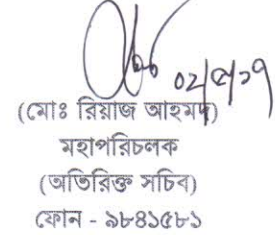 ০২/৫/১৭
(মোঃ রিয়াজ আহমদ)
মহাপরিচলক
(অতিরিক্ত সচিব)
ফোন - ৯৮৪১৫৮১